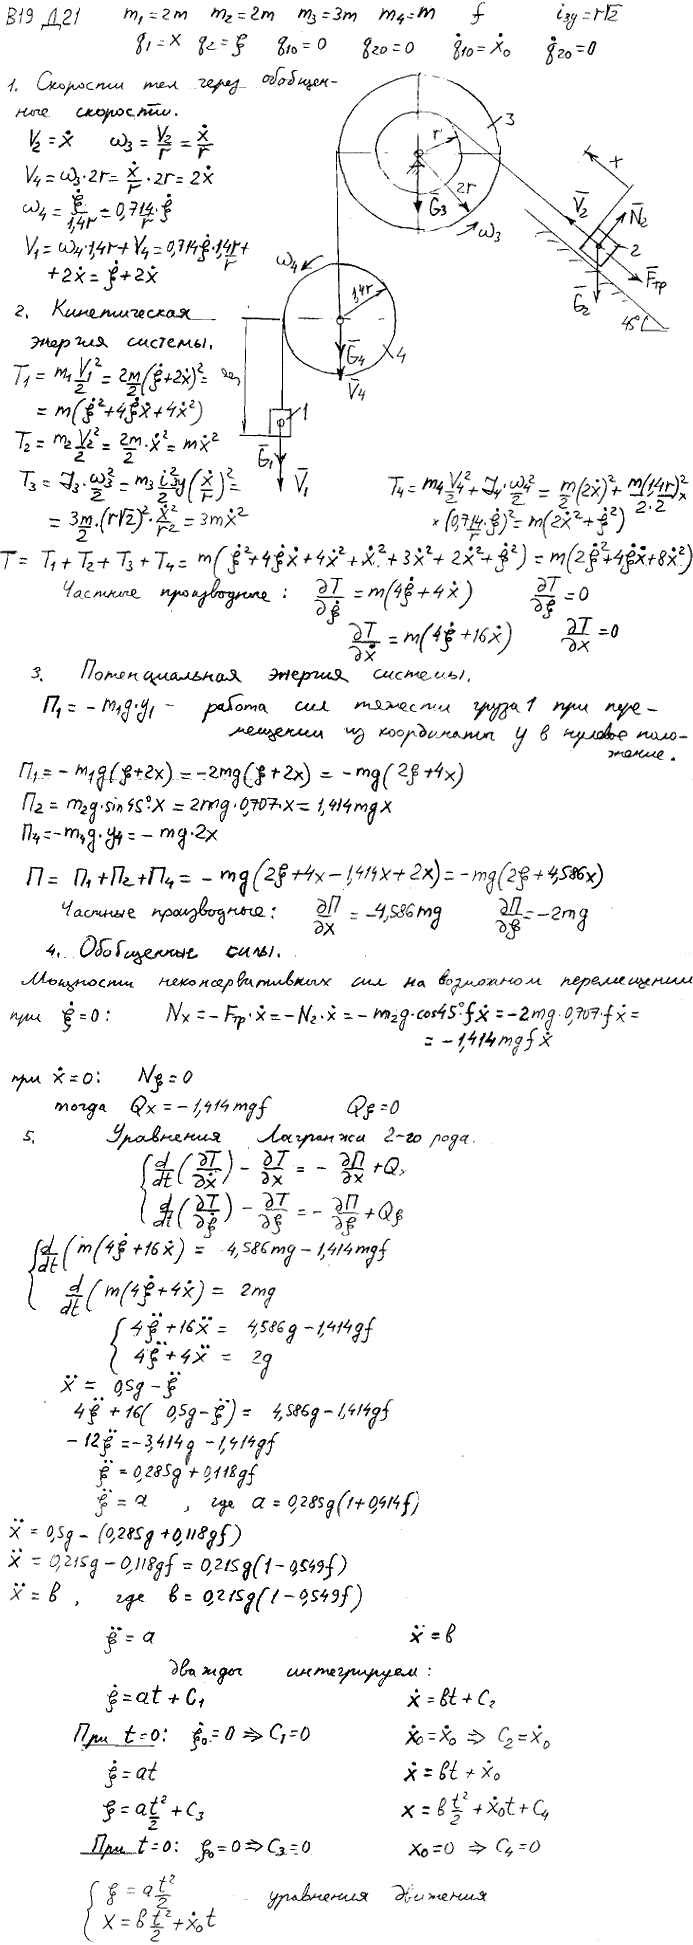 В19 Д21 m₁=2m m₂=2m m₃=3m m₄=m f i₃y=r√2
q₁=x q₂=ξ q₁₀=0 q₂₀=0 q̇₁₀=ẋ₀ q̇₂₀=0
1. Скорости тел через обобщен-
ные скорости.
V₂=ẋ ω₃=V₂/r=ẋ/r
V₄=ω₃·2r=ẋ/r·2r=2ẋ
ω₄=ξ̇/1,4r=0,714/r·ξ̇
V₁=ω₄·1,4r+V₄=0,714ξ̇·1,4r/r+
+2ẋ=ξ̇+2ẋ
3
r
2r
G̅₃
ω₃
x
V̅₂
N̅₂
2
F̅тр
G̅₂
45°
ω₄
1,4r
G̅₄
4
V̅₄
1
G̅₁
V̅₁
2. Кинетическая
энергия системы.
T₁=m₁V₁²/2=2m/2(ξ̇+2ẋ)²=
=m(ξ̇²+4ξ̇ẋ+4ẋ²)
T₂=m₂V₂²/2=2m/2·ẋ²=mẋ²
T₃=J₃·ω₃²/2=m₃i²₃y/2(ẋ/r)²=
=3m/2·(r√2)²·ẋ²/r²=3mẋ²
T₄=m₄V₄²/2+J₄·ω₄²/2=m/2(2ẋ)²+m(1,4r)²/2·2×
×(0,714/r·ξ̇)²=m(2ẋ²+ξ̇²)
T=T₁+T₂+T₃+T₄=m(ξ̇²+4ξ̇ẋ+4ẋ²+ẋ²+3ẋ²+2ẋ²+ξ̇²)=m(2ξ̇²+4ξ̇ẋ+8ẋ²)
Частные производные: ∂T/∂ξ̇=m(4ξ̇+4ẋ) ∂T/∂ξ=0
∂T/∂ẋ=m(4ξ̇+16ẋ) ∂T/∂x=0
3. Потенциальная энергия системы.
П₁=-m₁g·y₁ - работа сил тяжести груза 1 при пере-
мещении из координаты y в нулевое поло-
жение.
П₁=-m₁g(ξ+2x)=-2mg(ξ+2x)=-mg(2ξ+4x)
П₂=m₂g·sin45°·x=2mg·0,707·x=1,414mgx
П₄=-m₄g·y₄=-mg·2x
П=П₁+П₂+П₄=-mg(2ξ+4x-1,414x+2x)=-mg(2ξ+4,586x)
Частные производные: ∂П/∂x=-4,586mg ∂П/∂ξ=-2mg
4. Обобщенные силы.
Мощности неконсервативных сил на возможном перемещении
при ξ̇=0: Nx=-Fтр·ẋ=-N₂·ẋ=-m₂g·cos45°fẋ=-2mg·0,707·fẋ=
=-1,414mgfẋ
при ẋ=0: Nξ=0
тогда Qx=-1,414mgf Qξ=0
5. Уравнения Лагранжа 2-го рода.
d/dt(∂T/∂ẋ)-∂T/∂x=-∂П/∂x+Qx
d/dt(∂T/∂ξ̇)-∂T/∂ξ=-∂П/∂ξ+Qξ
d/dt(m(4ξ̇+16ẋ)=4,586mg-1,414mgf
d/dt(m(4ξ̇+4ẋ)=2mg
4ξ̈+16ẍ=4,586g-1,414gf
4ξ̈+4ẍ=2g
ẍ=0,5g-ξ̈
4ξ̈+16(0,5g-ξ̈)=4,586g-1,414gf
-12ξ̈=-3,414g-1,414gf
ξ̈=0,285g+0,118gf
ξ̈=a, где a=0,285g(1+0,414f)
ẍ=0,5g-(0,285g+0,118gf)
ẍ=0,215g-0,118gf=0,215g(1-0,549f)
ẍ=в, где в=0,215g(1-0,549f)
ξ̈=a ẍ=в
дважды интегрируем:
ξ̇=at+C₁ ẋ=вt+C₂
При t=0: ξ̇₀=0⇒C₁=0 ẋ₀=ẋ₀⇒C₂=ẋ₀
ξ̇=at ẋ=вt+ẋ₀
ξ=at²/2+C₃ x=вt²/2+ẋ₀t+C₄
При t=0: ξ₀=0⇒C₃=0 x₀=0⇒C₄=0
ξ=at²/2 - уравнения движения
x=вt²/2+ẋ₀t